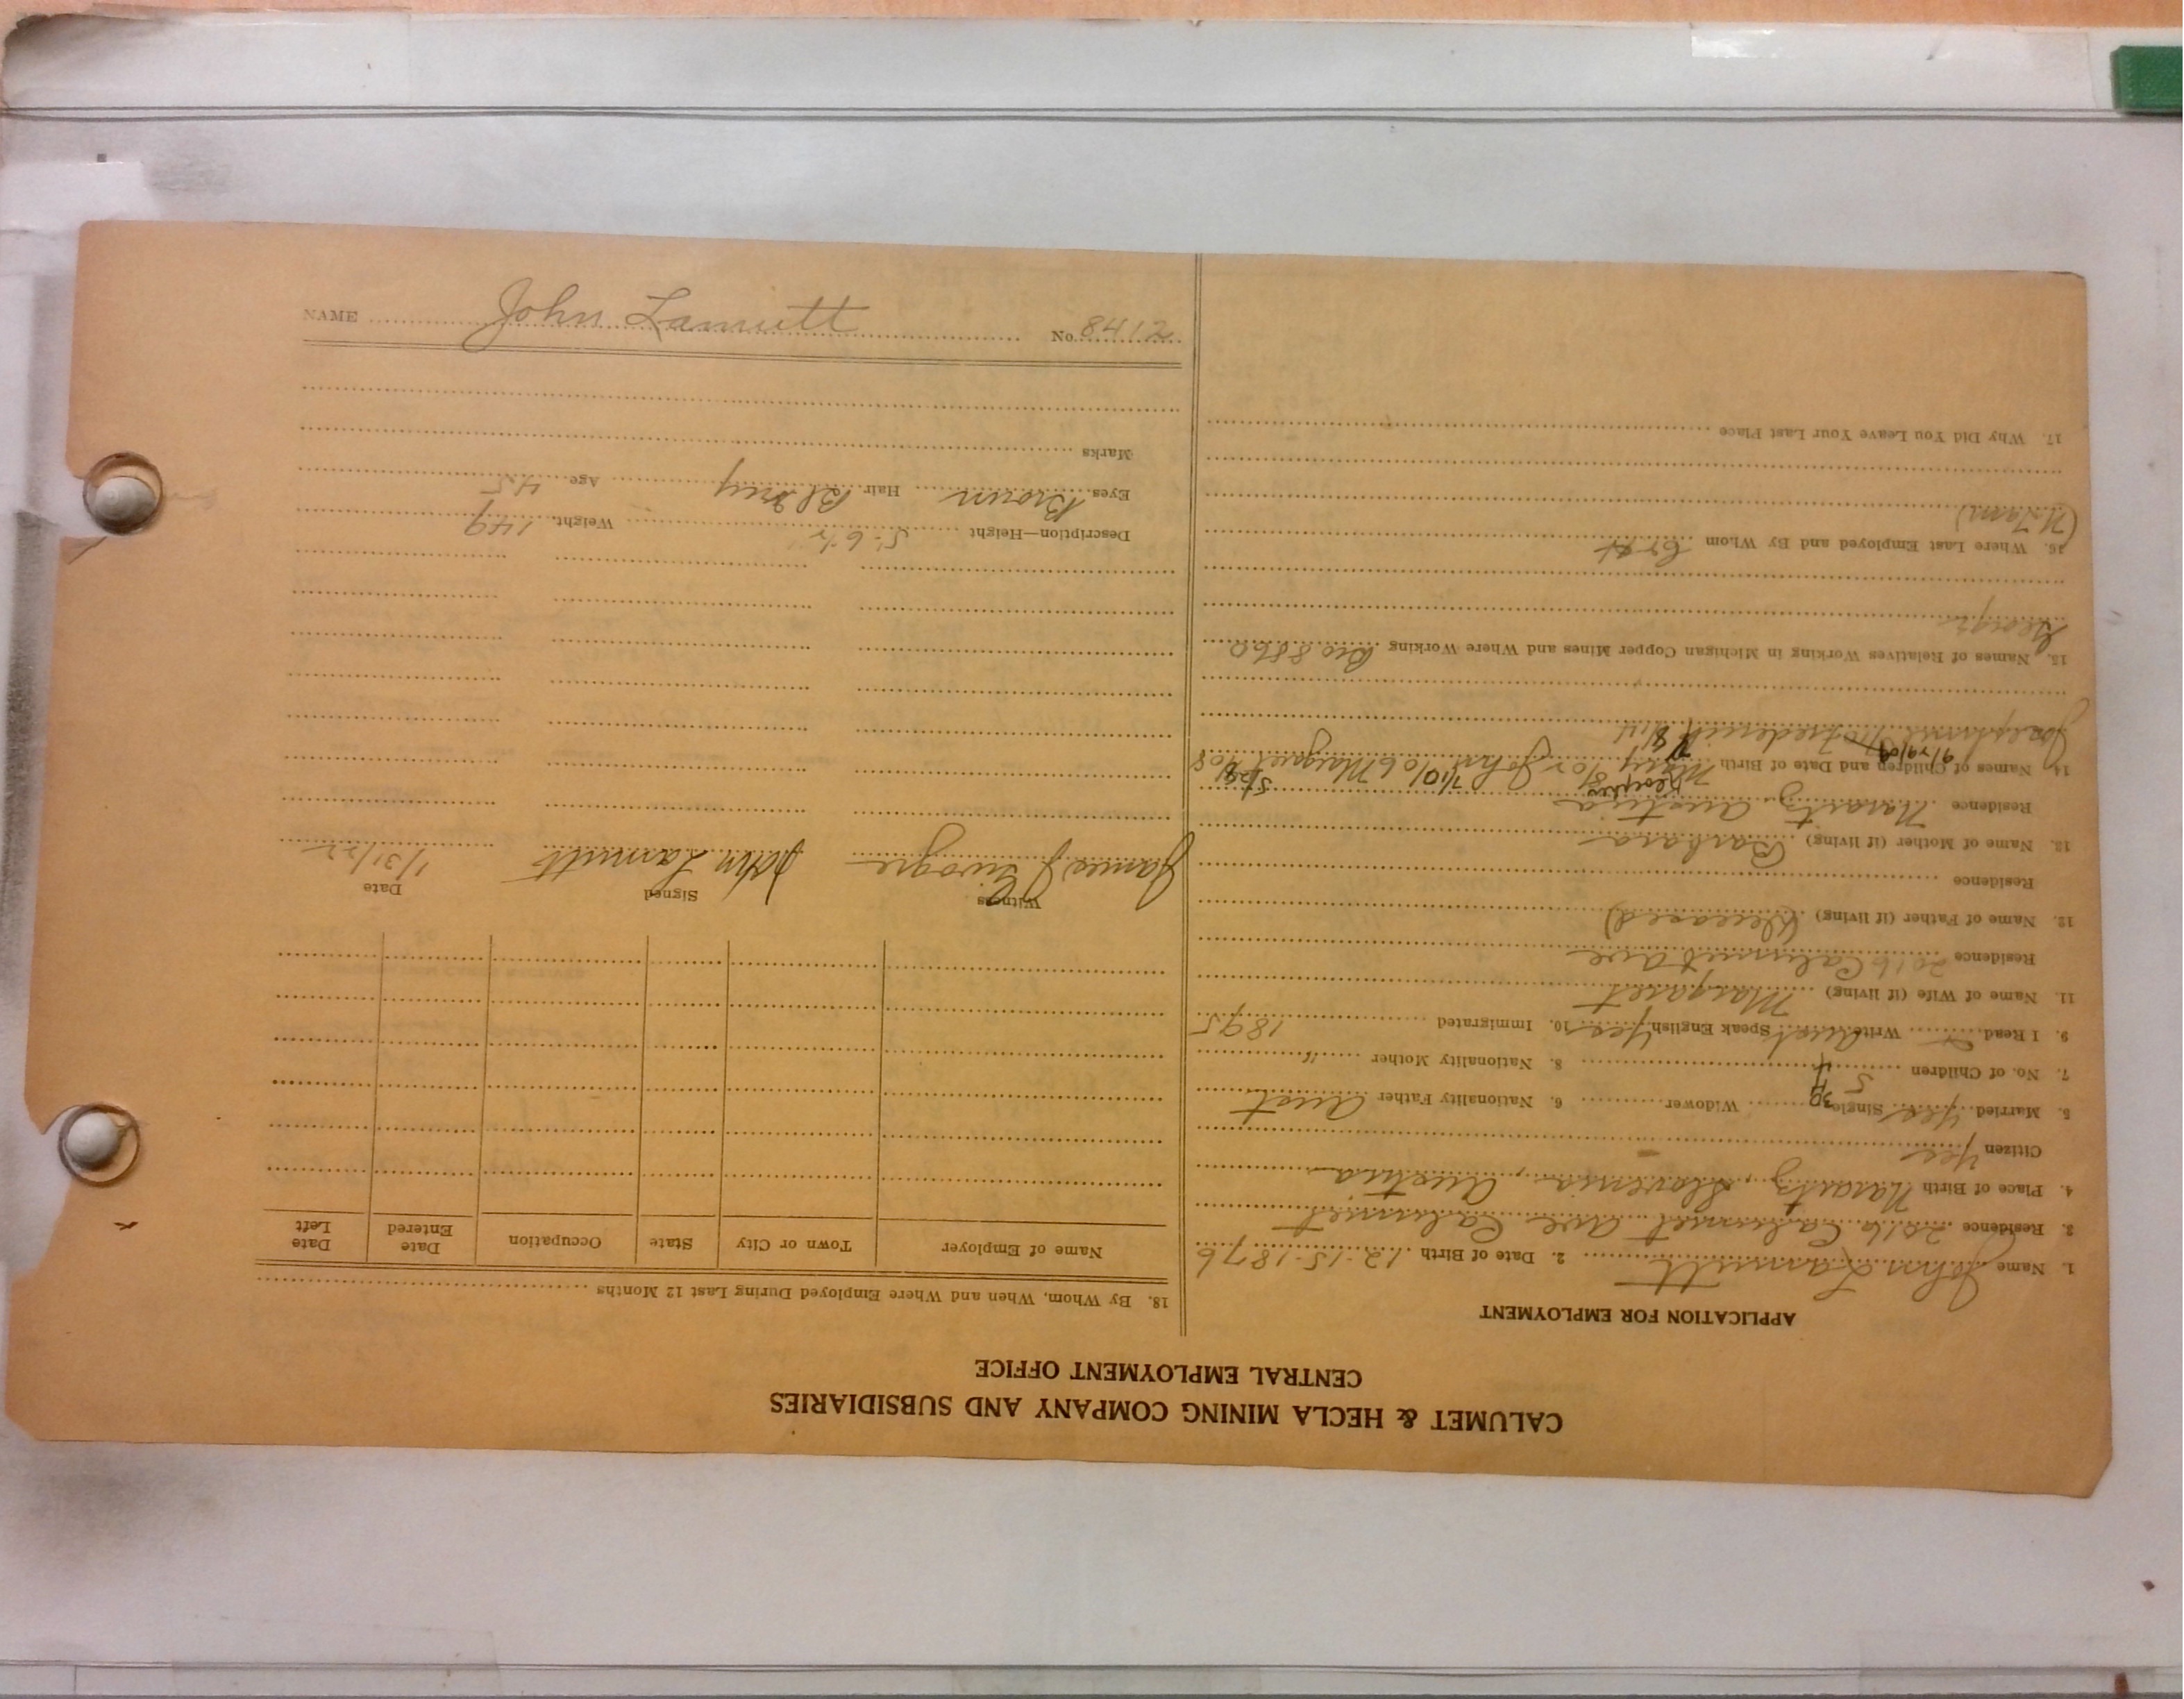 CALUMET & HECLA MINING COMPANY AND SUBSIDIARIES
CENTRAL EMPLOYMENT OFFICE
APPLICATION FOR EMPLOYMENT
1. Name John Lamutt 2. Date of Birth 12-15-1876
3. Residence 2016 Calumet Ave Calumet
4. Place of Birth Slavenia, Austria
Citizen Yes
5. Married Yes Single Widower 6. Nationality Father Aust
7. No. of Children 5 8. Nationality Mother "
9. I Read Write Aust Speak English Yes 10. Immigrated 1895
11. Name of Wife (if living) Margaret
Residence 2016 Calumet Ave
12. Name of Father (if living) (Deceased)
Residence
13. Name of Mother (if living) Barbara
Residence Austria
14. Names of Children and Date of Birth Mary John 7/10/06 Margaret
Josephine Frederick 8/14
15. Names of Relatives Working in Michigan Copper Mines and Where Working Geo. 8860
George
16. Where Last Employed and By Whom
17. Why Did You Leave Your Last Place
18. By Whom, When and Where Employed During Last 12 Months
Name of Employer Town or City State Occupation Date Entered Date Left
Witness Signed Date
James J John Lamutt 1/31/22
Description—Height 5-6½ Weight 149
Eyes Brown Hair Bl Grey Age 45
Marks
NAME John Lamutt No. 8412